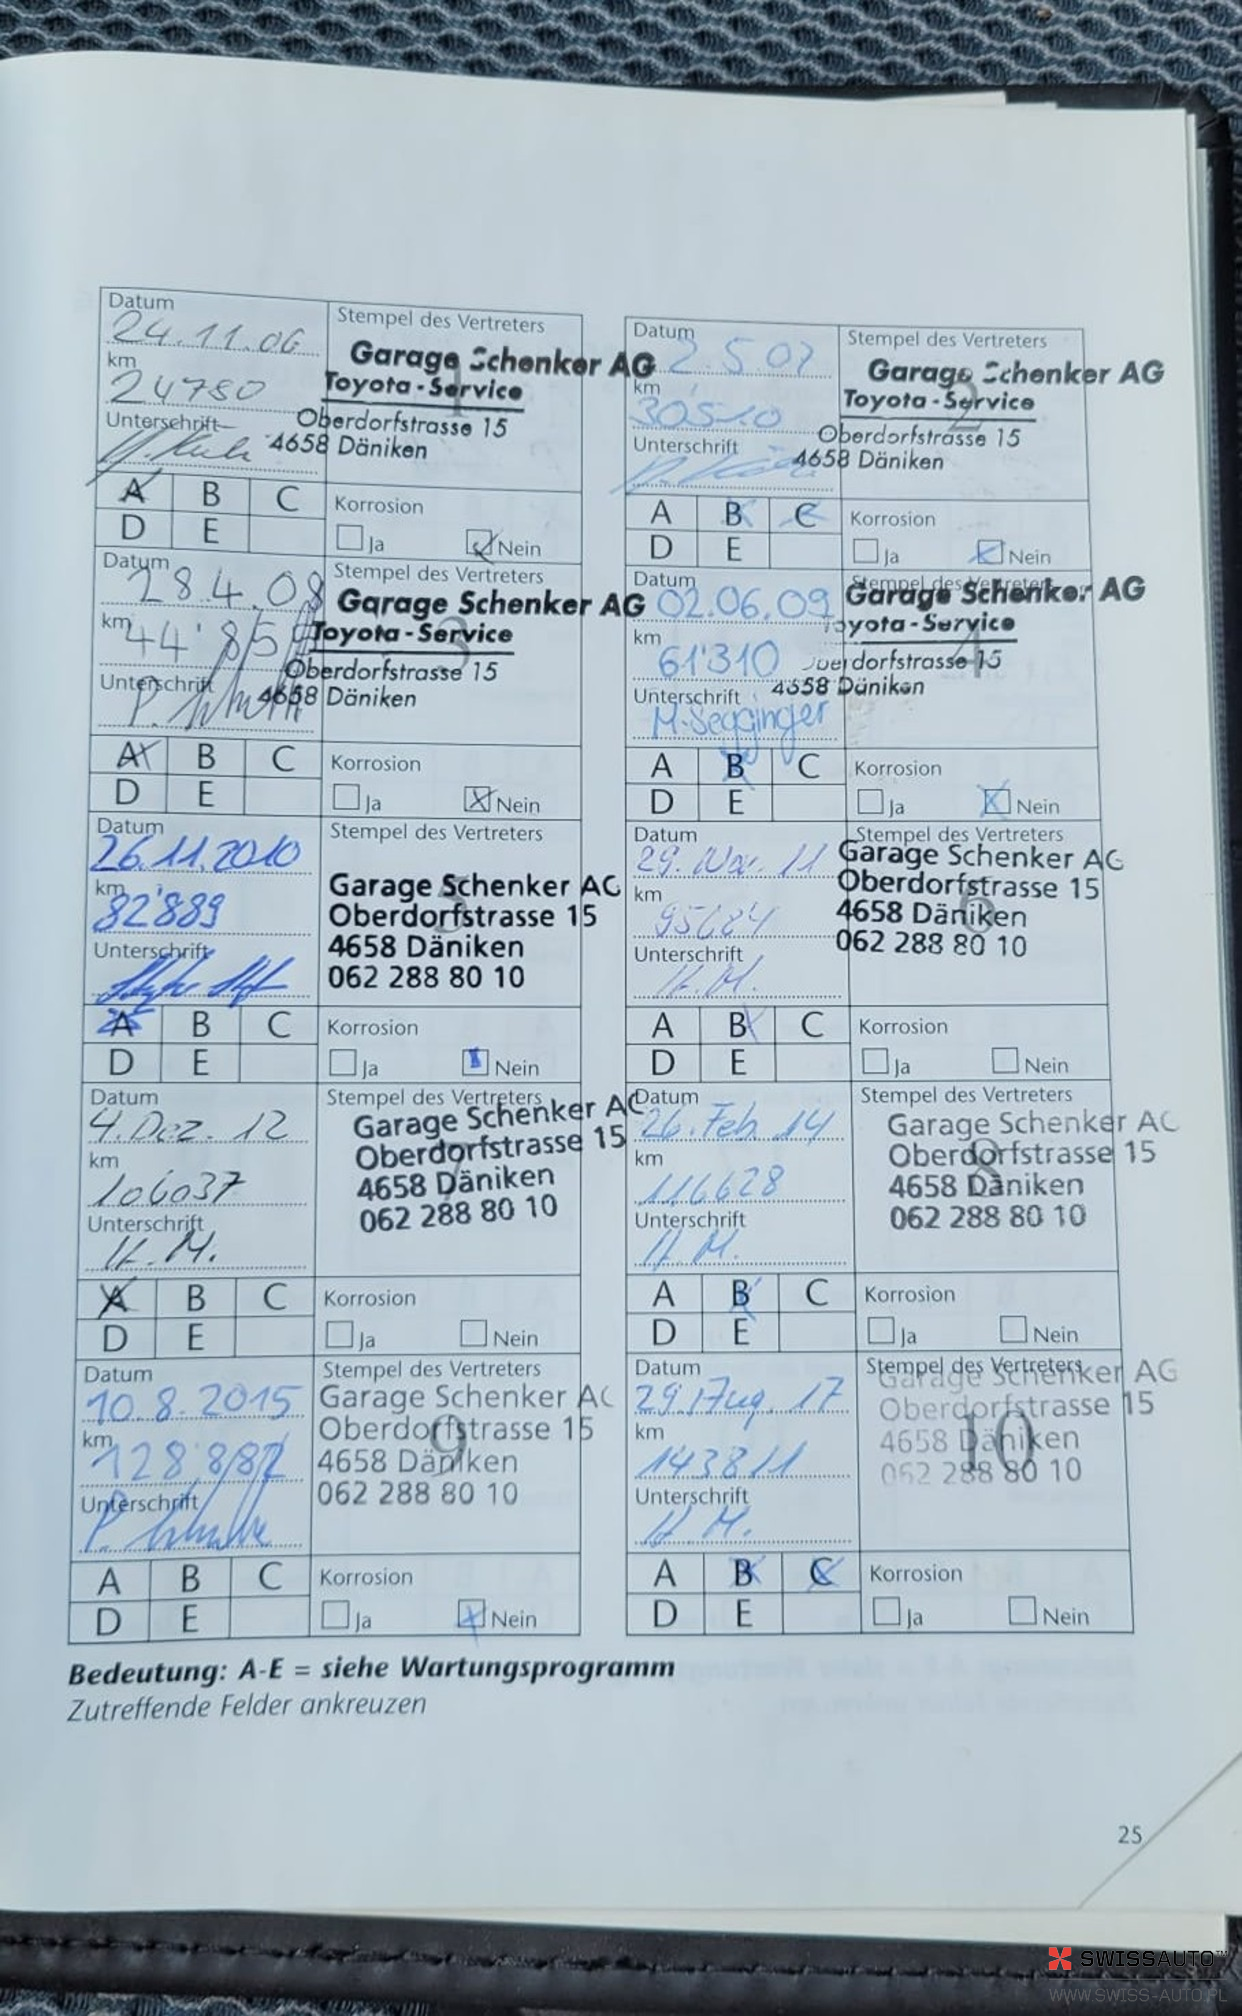 Datum
24.11.06
km
24780
Unterschrift
Stempel des Vertreters
Garage Schenker AG
Toyota - Service
Oberdorfstrasse 15
4658 Däniken
1
A B C
D E
Korrosion
Ja Nein
Datum
2.5.07
km
30510
Unterschrift
Stempel des Vertreters
Garage Schenker AG
Toyota - Service
Oberdorfstrasse 15
4658 Däniken
2
A B C
D E
Korrosion
Ja Nein
Datum
28.4.08
km
Unterschrift
Stempel des Vertreters
Garage Schenker AG
Toyota - Service
Oberdorfstrasse 15
4658 Däniken
3
A B C
D E
Korrosion
Ja Nein
Datum
02.06.09
km
61'310
Unterschrift
M. Segginger
Stempel des Vertreters
Garage Schenker AG
Toyota - Service
Oberdorfstrasse 15
4658 Däniken
4
A B C
D E
Korrosion
Ja Nein
Datum
26.11.2010
km
82'889
Unterschrift
Stempel des Vertreters
Garage Schenker AG
Oberdorfstrasse 15
4658 Däniken
062 288 80 10
5
A B C
D E
Korrosion
Ja Nein
Datum
29. Nov. 11
km
95684
Unterschrift
H. M.
Stempel des Vertreters
Garage Schenker AG
Oberdorfstrasse 15
4658 Däniken
062 288 80 10
6
A B C
D E
Korrosion
Ja Nein
Datum
4. Dez. 12
km
106037
Unterschrift
H. M.
Stempel des Vertreters
Garage Schenker AG
Oberdorfstrasse 15
4658 Däniken
062 288 80 10
7
A B C
D E
Korrosion
Ja Nein
Datum
26. Feb 14
km
116628
Unterschrift
H. M.
Stempel des Vertreters
Garage Schenker AG
Oberdorfstrasse 15
4658 Däniken
062 288 80 10
8
A B C
D E
Korrosion
Ja Nein
Datum
10.8.2015
km
128'887
Unterschrift
Stempel des Vertreters
Garage Schenker AG
Oberdorfstrasse 15
4658 Däniken
062 288 80 10
9
A B C
D E
Korrosion
Ja Nein
Datum
29. Aug. 17
km
143811
Unterschrift
H. M.
Stempel des Vertreters
Garage Schenker AG
Oberdorfstrasse 15
4658 Däniken
062 288 80 10
10
A B C
D E
Korrosion
Ja Nein
Bedeutung: A-E = siehe Wartungsprogramm
Zutreffende Felder ankreuzen
25
SWISSAUTO™
WWW.SWISS-AUTO.PL